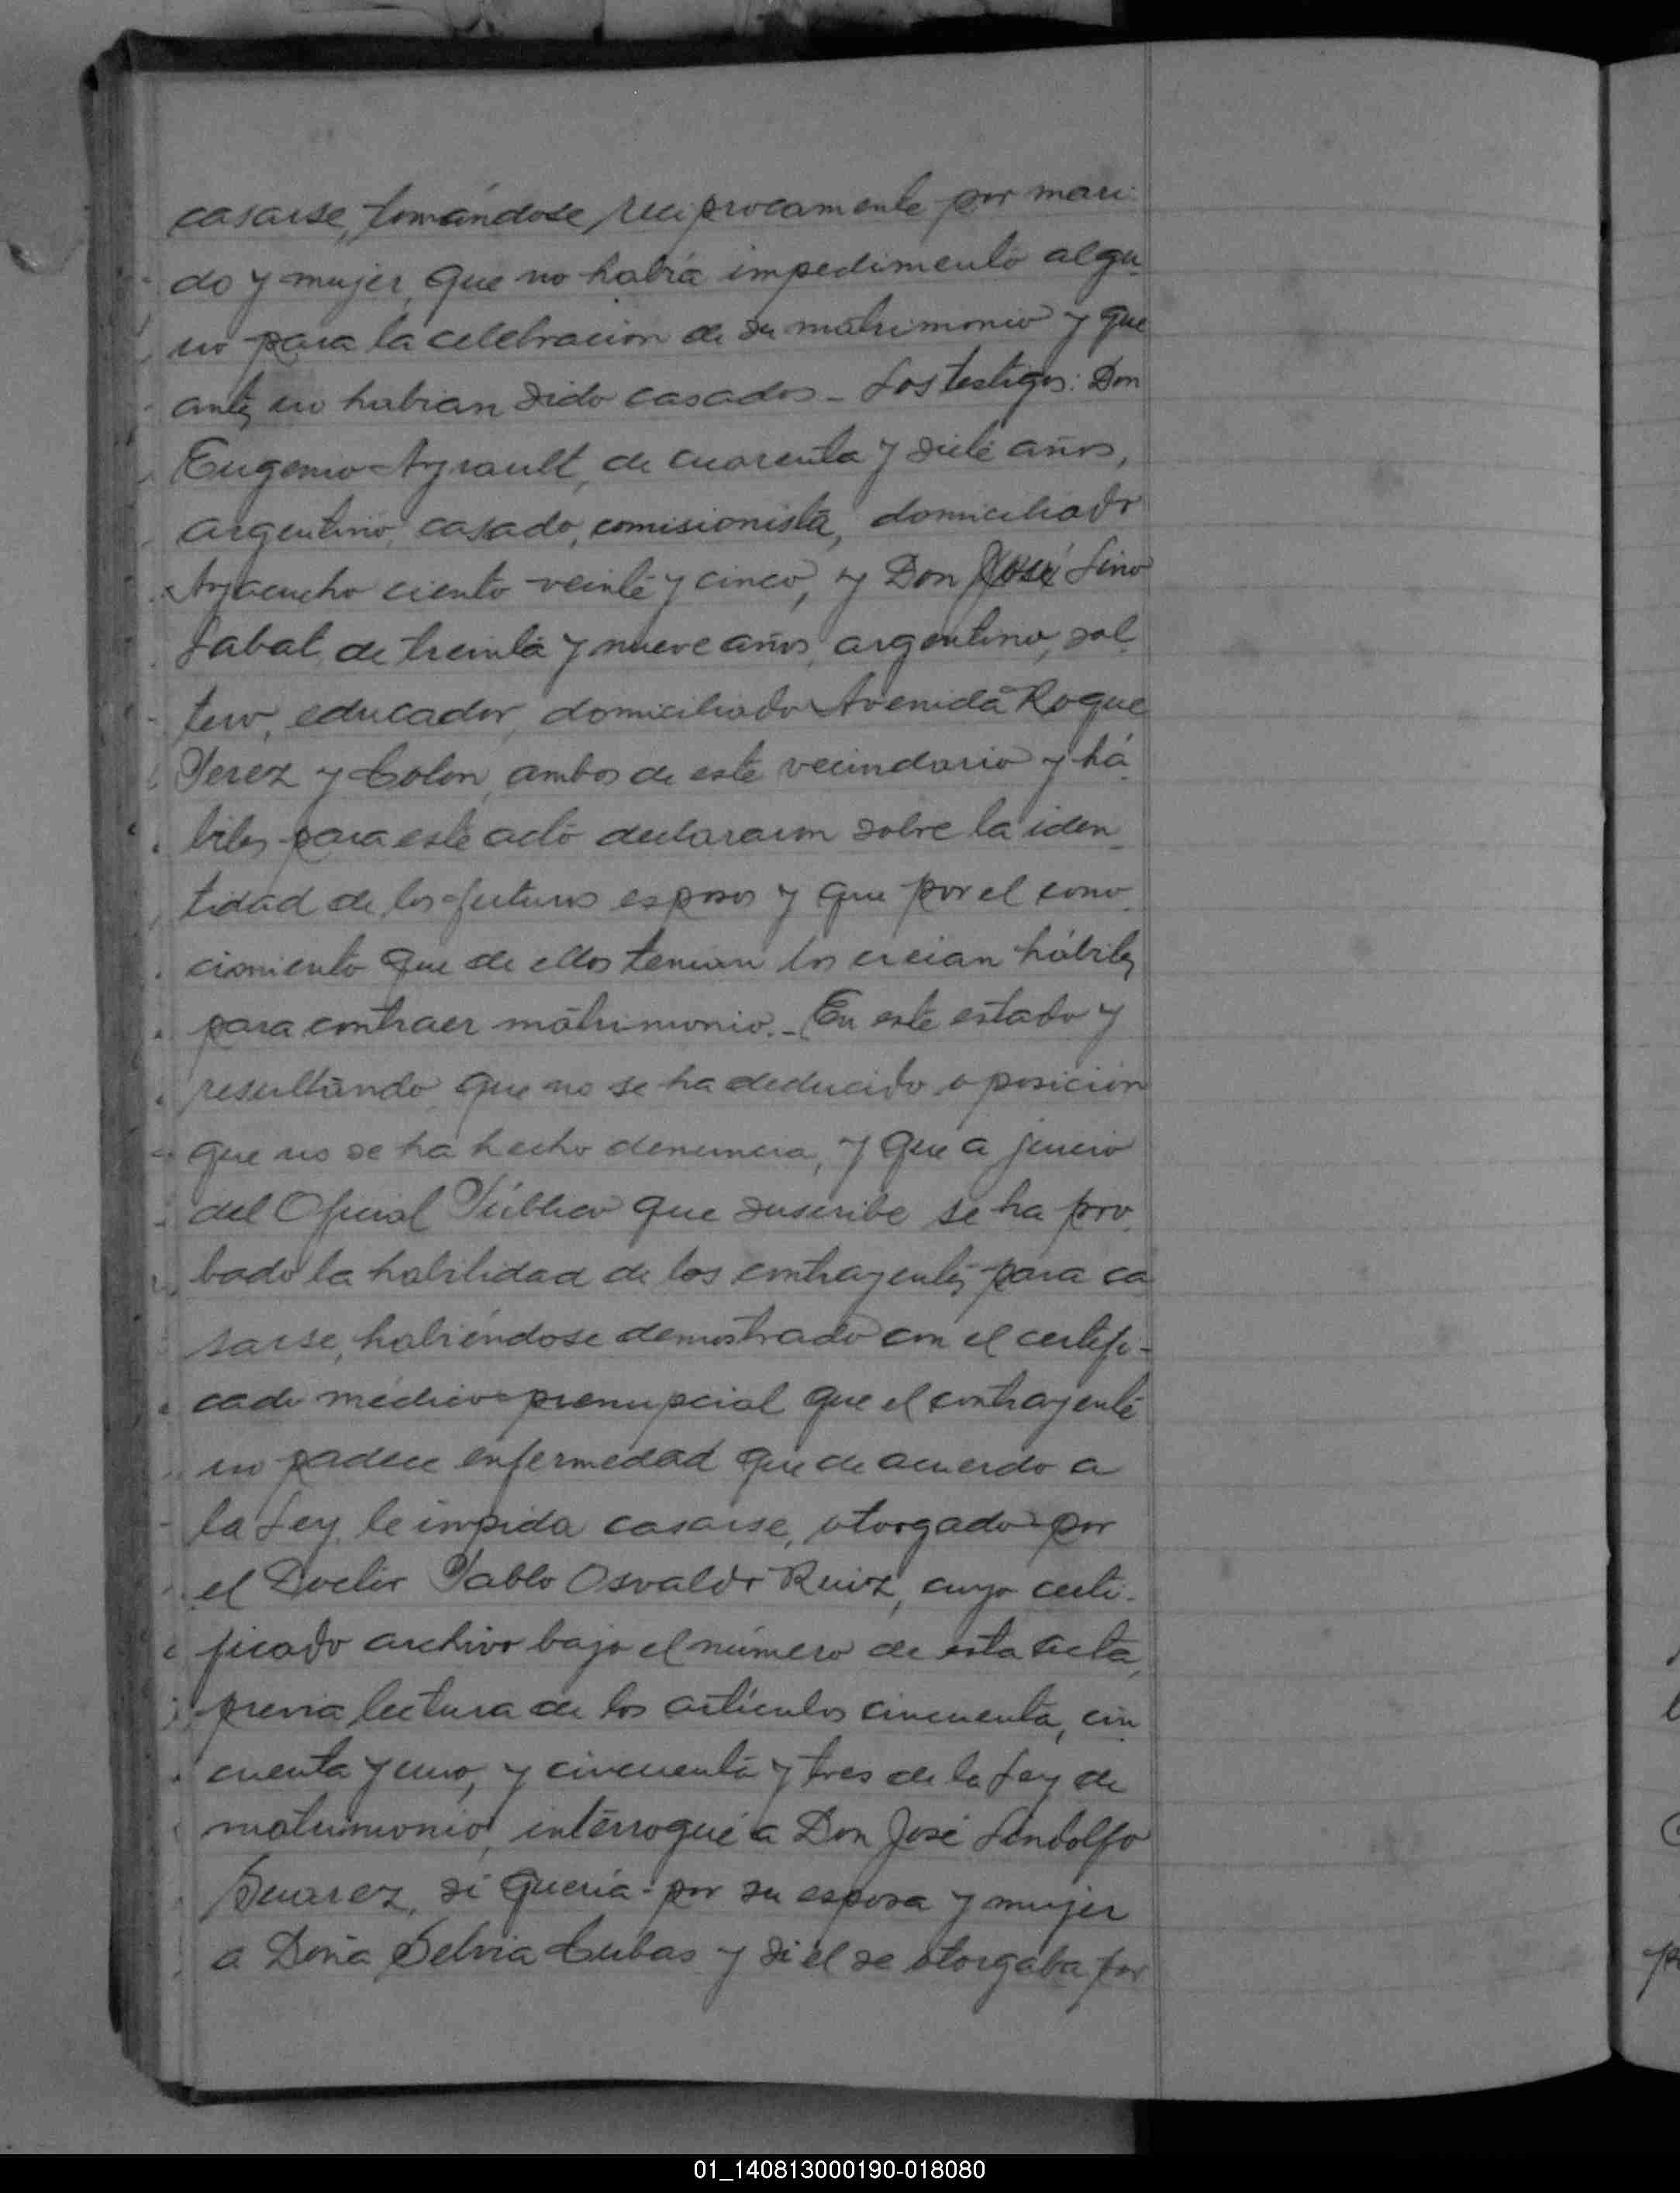 casarse, tomándose recíprocamente por mari-
do y mujer, que no había impedimento algu-
no para la celebracion de su matrimonio y que
antes no habian sido casados - Los testigos: Don
Eugenio Ayrault, de cuarenta y siete años,
argentino, casado, comisionista, domiciliado
Ayacucho ciento veinte y cinco, y Don José Lino
Labat, de treinta y nueve años, argentino, sol-
tero, educador, domiciliado Avenida Roque
Perez y Colon, ambos de este vecindario y há-
biles para este acto declararon sobre la iden-
tidad de los futuros esposos y que por el cono-
cimiento que de ellos tenian los creian hábiles
para contraer matrimonio.- En este estado y
resultando que no se ha deducido oposición
que no se ha hecho denuncia, y que a juicio
del Oficial Público que suscribe se ha pro-
bado la habilidad de los contrayentes para ca
sarse, habiéndose demostrado con el certifi-
cado médico prenupcial que el contrayente
no padece enfermedad que de acuerdo a
la Ley le impida casarse, otorgado por
el Doctor Pablo Osvaldo Ruiz, cuyo certi-
ficado archivo bajo el número de esta acta,
previa lectura de los artículos cincuenta, cin
cuenta y uno, y cincuenta y tres de la Ley de
matrimonio, interrogué a Don José Lindolfo
Suarez, si quería por su esposa y mujer
a Doña Selvia Cubas y si el se otorgaba por
01_140813000190-018080